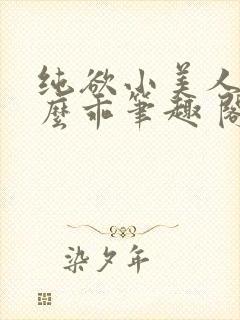 纯欲小美人
麽乖笔趣阁
染夕年